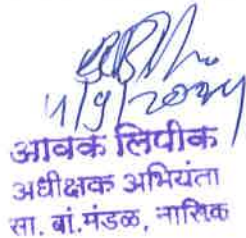 11/9/2024
आवक लिपीक
अधीक्षक अभियंता
सा. बां.मंडळ, नासिक